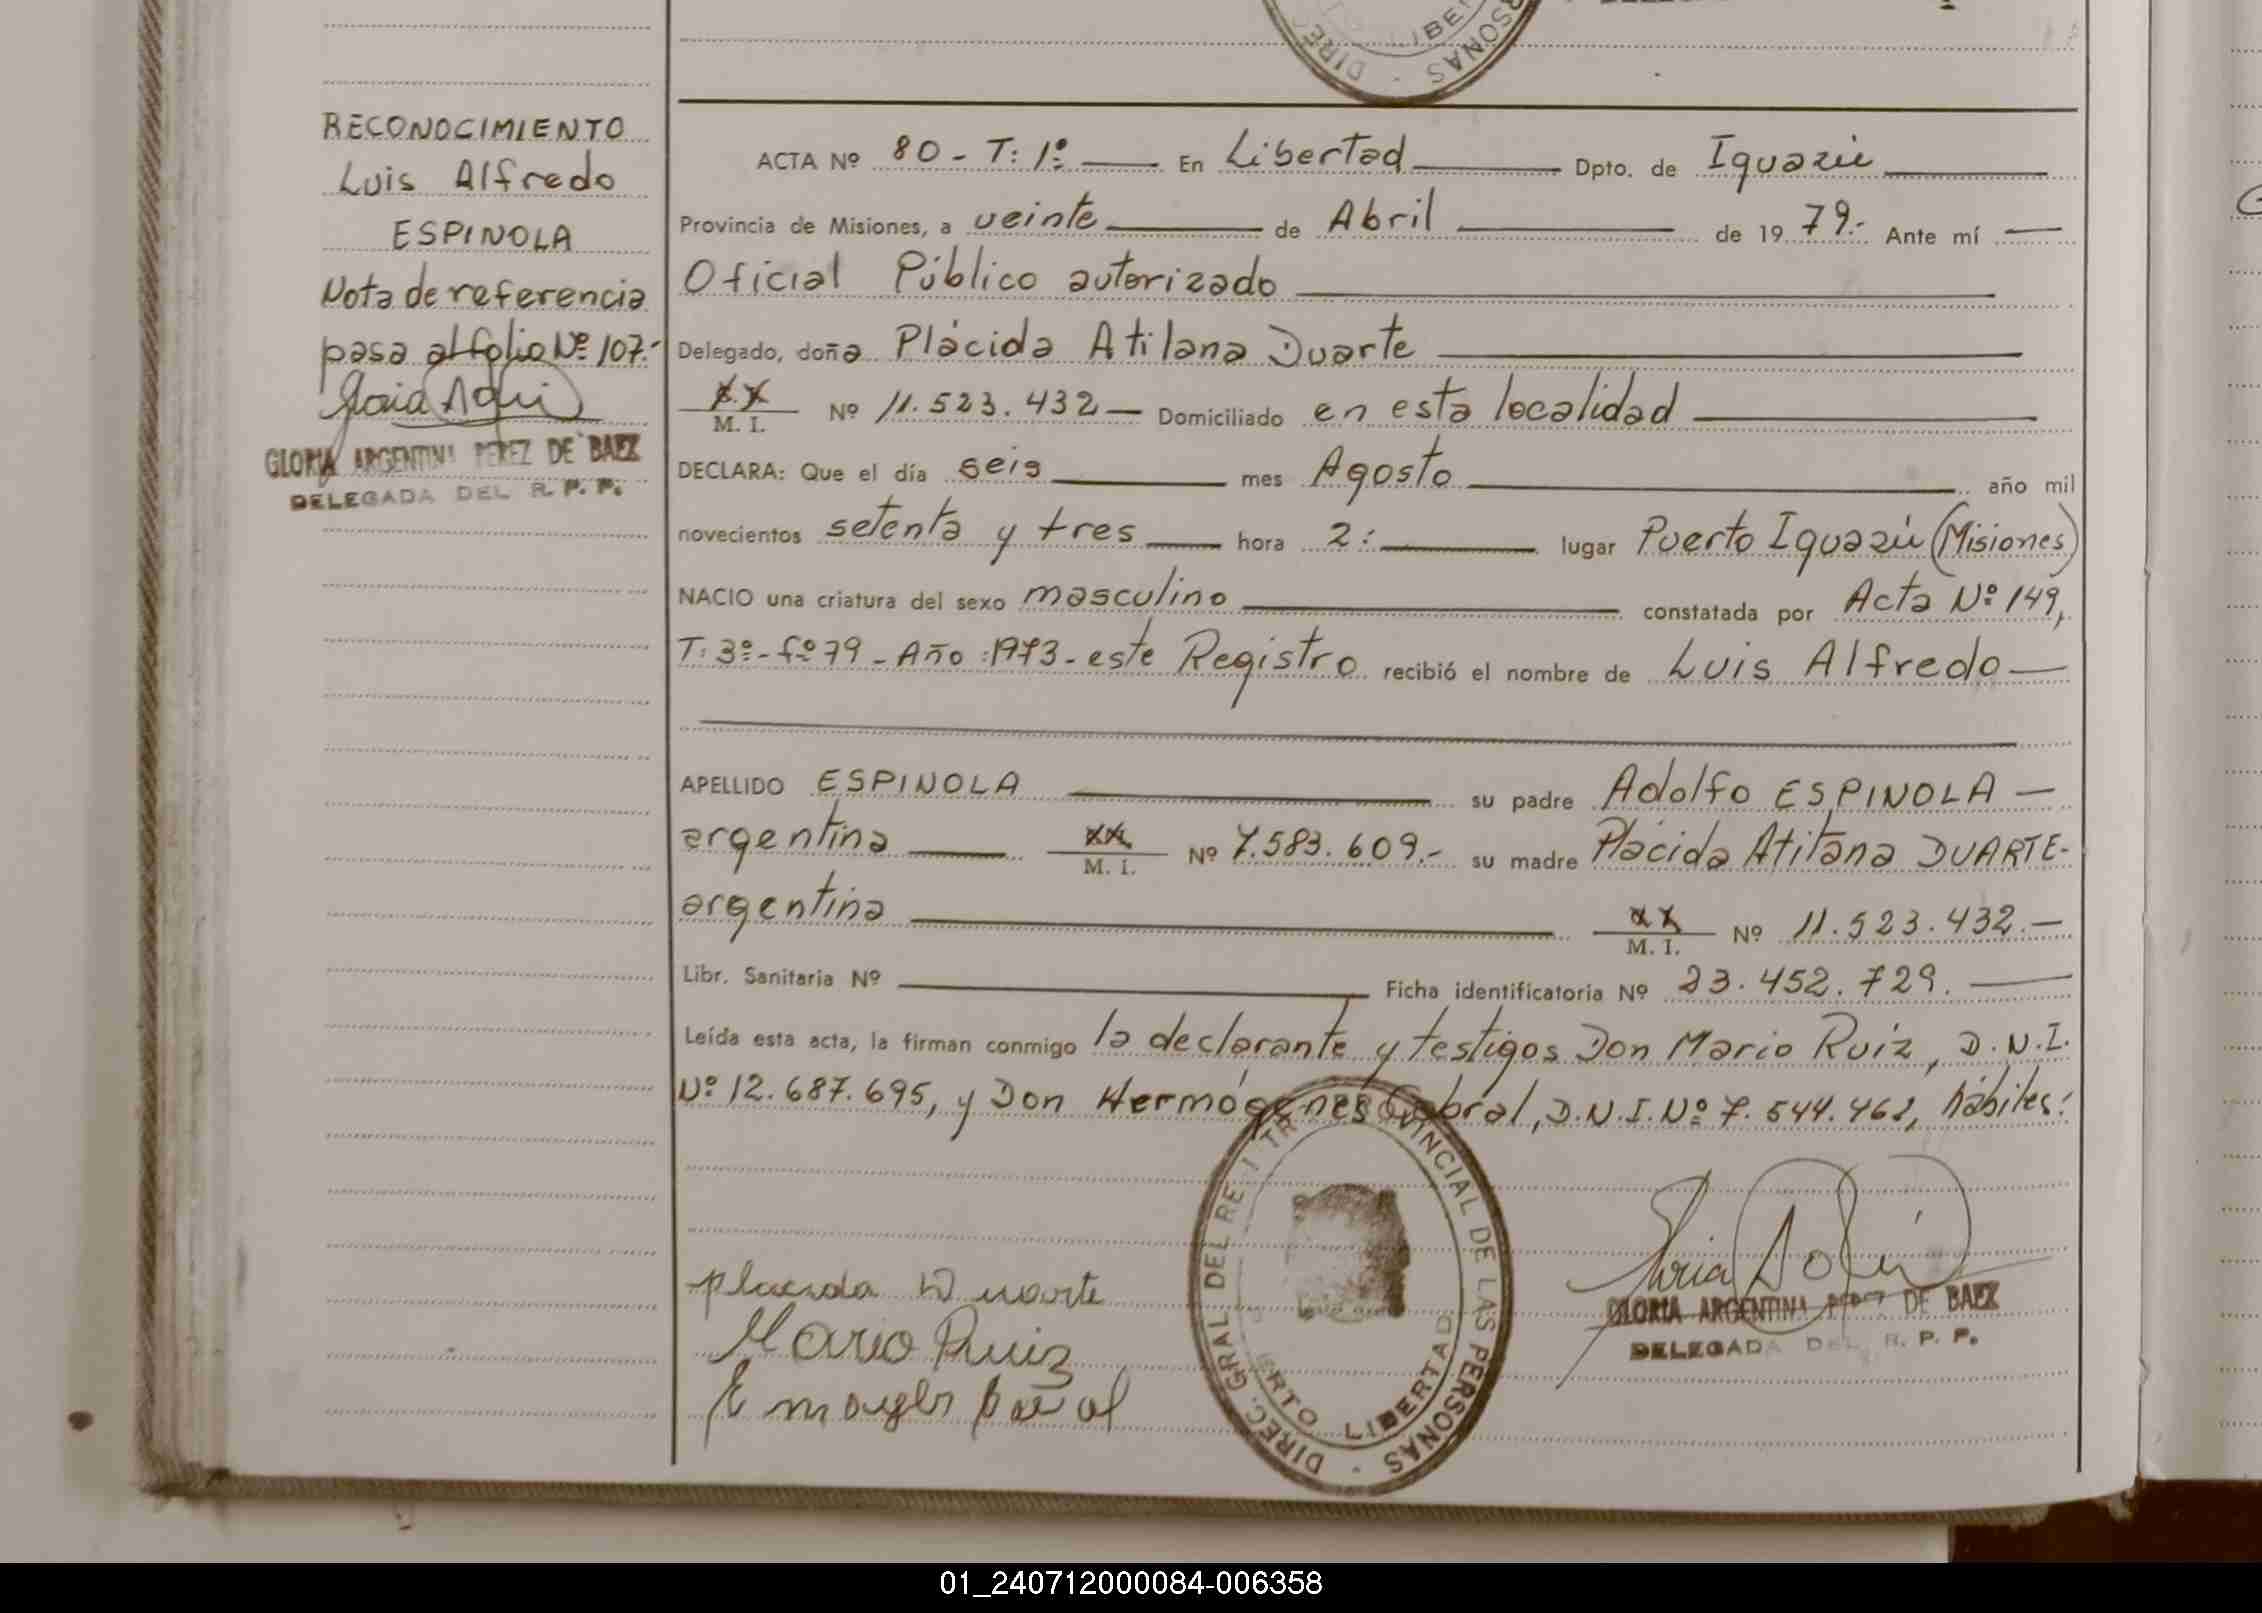 DIREC
LIBE
PERSONAS
RECONOCIMIENTO
Luis Alfredo
ESPINOLA
Nota de referencia
pasa al folio Nº 107.-
GLORIA ARGENTINA PEREZ DE BAEZ
DELEGADA DEL R. P. P.
ACTA Nº 80 - T: 1º En Libertad Dpto. de Iguazú
Provincia de Misiones, a veinte de Abril de 19 79.- Ante mí
Oficial Público autorizado
Delegado, doña Plácida Atilana Duarte
M. I. Nº 11.523.432 Domiciliado en esta localidad
DECLARA: Que el día seis mes Agosto año mil
novecientos setenta y tres hora 2: lugar Puerto Iguazú (Misiones)
NACIO una criatura del sexo masculino constatada por Acta Nº 149,
T: 3º - fº 79 - Año: 1973 - este Registro recibió el nombre de Luis Alfredo
APELLIDO ESPINOLA su padre Adolfo ESPINOLA
argentina M. I. Nº 7.583.609.- su madre Plácida Atilana DUARTE-
argentina M. I. Nº 11.523.432.-
Libr. Sanitaria Nº Ficha identificatoria Nº 23.452.729.
Leída esta acta, la firman conmigo la declarante y testigos Don Mario Ruiz, D.N.I.
Nº 12.687.695, y Don Hermógenes Cabral, D.N.I. Nº 7.544.462, hábiles:
placida Duarte
Mario Ruiz
DIREC. GRAL DEL REGISTRO PROVINCIAL DE LAS PERSONAS
PUERTO LIBERTAD
GLORIA ARGENTINA PEREZ DE BAEZ
DELEGADA DEL R. P. P.
01_240712000084-006358